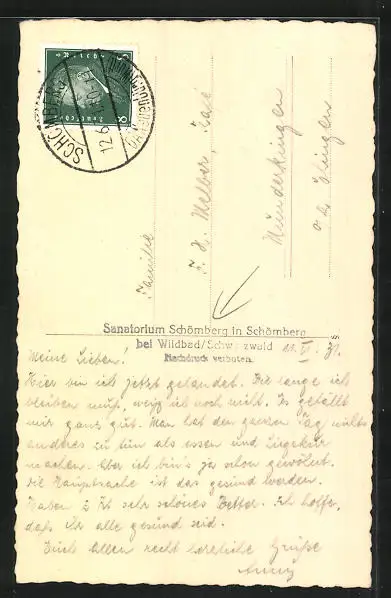 SCHÖMBERG
12.6.
8 Deutsches Reich 8
Familie
F. X. Melber,
Munderkingen
Sanatorium Schömberg in Schömberg
bei Wildbad/Schwarzwald
Nachdruck verboten.
11. VI. 31.
Meine Lieben!
Hier bin ich jetzt gelandet. Wie lange ich
bleiben muß, weiß ich noch nicht. Es gefällt
mir ganz gut. Man hat den ganzen Tag nichts
anderes zu tun als essen und Liegekur
machen. Aber ich bin's ja schon gewöhnt.
die Hauptsache ist das gesund werden.
Haben z. Zt. sehr schönes Wetter. Ich hoffe,
daß Ihr alle gesund seid.
Euch allen recht herzliche Grüße